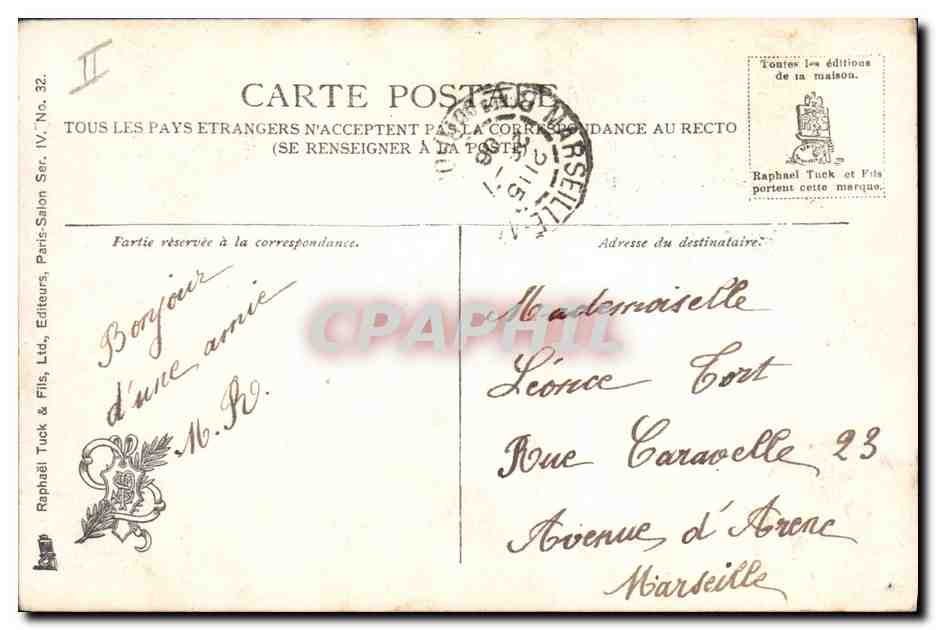 II
CARTE POSTALE
TOUS LES PAYS ETRANGERS N'ACCEPTENT PAS LA CORRESPONDANCE AU RECTO
(SE RENSEIGNER À LA POSTE)
Toutes les éditions
de la maison.
Raphael Tuck et Fils
portent cette marque.
MARSEILLE
Raphaël Tuck & Fils, Ltd., Editeurs, Paris-Salon Ser. IV, No. 32.
Partie réservée à la correspondance.
Bonjour
d'une amie
M. R.
Adresse du destinataire.
Mademoiselle
Léonce Tort
Rue Caravelle 23
Avenue d'Arenc
Marseille
CPAPHIL